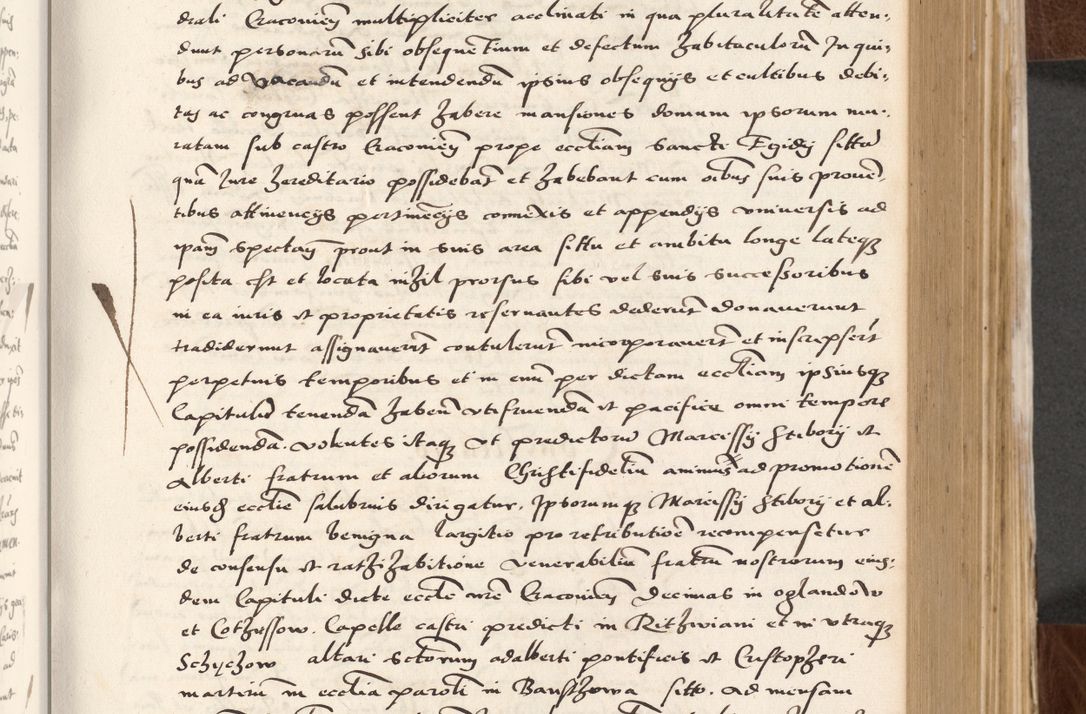 drali Cracovien̄ multipliciter acclinati in qua pluralitatē atten,
dunt personarū sibi obsequentium et defectum habitaculorū In qui,
bus ad vacandū et intendendū ipsius obsequijs et cultibus debi,
tas ac congruas possent habere mansiones domum ipsorum mu,
ratam sub castro Cracovien̄ prope eccliam Sancti Egidij sittā
quā Iure hereditario possidebāt et habebant cum oībus suis proven̄
tibus attinencijs pertinēcijs connexis et appendijs universis ad
ipām spectan̄ prout in suis area sittu et ambitu longe lateqz
posita est et locata nihil prorsus sibi vel suis successoribus
in ea iuris et proprietatis reservantes dederūt donaverunt
tradiderunt assignaverūt contulerunt incorporaverūt et inscripserūt
perpetuis temporibus et in evū per dictam eccliam ipsiusqz
Capitulū tenendā habēn utifruendā et pacifice omni tempore
possidendā. volentes itaqz ut predictorū Marcissij Stiborij et
Alberti fratrum et aliorum Christifideliū animus ad promotionē
eiusdē ecclie salubrius dirigatur, Ipsorumqz Marcissij Stiborij et al,
berti fratrum benigna largitio pro retributiōe recompensetur
de consensu et ratihabitione venerabiliū fratrū nostrorum eius,
dem Capituli dicte ecclie nrē Cracovien̄ decimas in oglandow
et Cothussow. Capelle castri predicti in Rithwiani et in utraqz
Schychow altari sctorum adalberti pontificis et Cristopheri
martirū in ecclia paroli in Banshowa sitto. Ad mensam